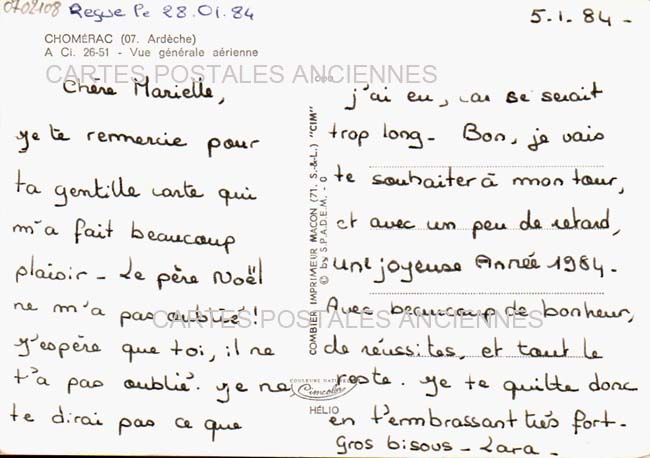 0702108
Reçue le 28.01.84
5.1.84-
CHOMÉRAC (07. Ardèche)
A Ci. 26-51 - Vue générale aérienne
CARTES POSTALES ANCIENNES
Chère Marielle,
je te remercie pour
ta gentille carte qui
m'a fait beaucoup
plaisir - Le père Noël
ne m'a pas oublié !
J'espère que toi, il ne
t'a pas oublié. Je ne
te dirai pas ce que
COMBIER IMPRIMEUR MACON (71. S.-&-L.) "CIM"
© by S.P.A.D.E.M. - 0
COULEURS NATURELLES
Cimcolor
HÉLIO
j'ai eu, car se serait
trop long - Bon, je vais
te souhaiter à mon tour,
et avec un peu de retard,
une joyeuse Année 1984-
Avec beaucoup de bonheur,
de réussites, et tout le
reste. Je te quitte donc
en t'embrassant très fort-
Gros bisous - Lara -
CARTES POSTALES ANCIENNES